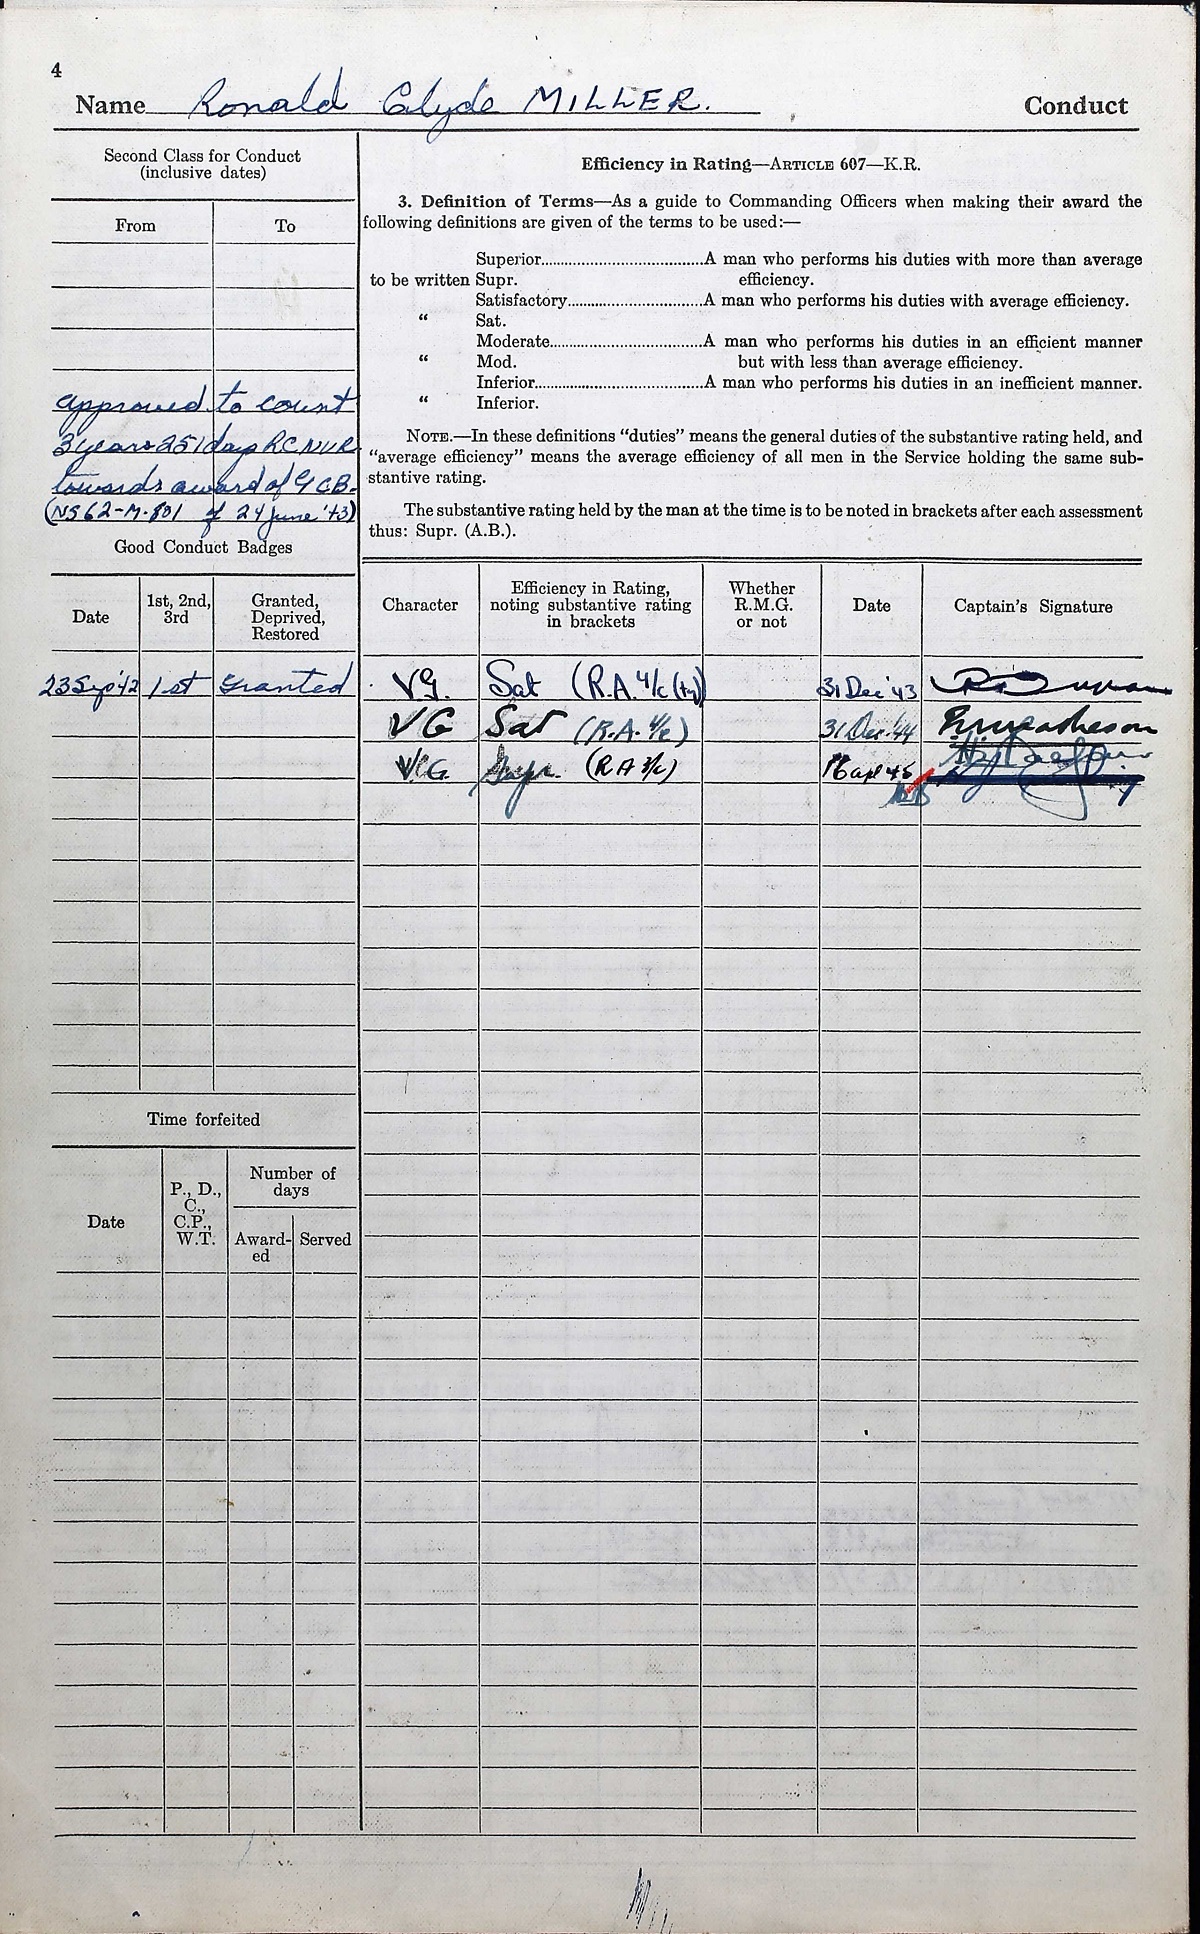 4
Name Ronald Clyde MILLER. Conduct
Second Class for Conduct
(inclusive dates)
From To
approved to count
3 years 251 days RCNVR
towards award of GCB.
(NS 62-M-801 of 24 June '43)
Good Conduct Badges
Date 1st, 2nd, 3rd Granted, Deprived, Restored
23 Sep '42 1st Granted
Time forfeited
Date P., D., C., C.P., W.T. Number of days
Awarded Served
Efficiency in Rating—ARTICLE 607—K.R.
3. Definition of Terms—As a guide to Commanding Officers when making their award the
following definitions are given of the terms to be used:—
Superior..........................................A man who performs his duties with more than average
to be written Supr. efficiency.
Satisfactory...................................A man who performs his duties with average efficiency.
“ Sat.
Moderate.......................................A man who performs his duties in an efficient manner
“ Mod. but with less than average efficiency.
Inferior...........................................A man who performs his duties in an inefficient manner.
“ Inferior.
NOTE.—In these definitions “duties” means the general duties of the substantive rating held, and
“average efficiency” means the average efficiency of all men in the Service holding the same sub-
stantive rating.
The substantive rating held by the man at the time is to be noted in brackets after each assessment
thus: Supr. (A.B.).
Character Efficiency in Rating, noting substantive rating in brackets Whether R.M.G. or not Date Captain's Signature
VG. Sat (R.A. 4/c (ty)) 31 Dec '43
VG Sat (R.A. 4/c) 31 Dec. 44
VG Supr. (RA 3/c)